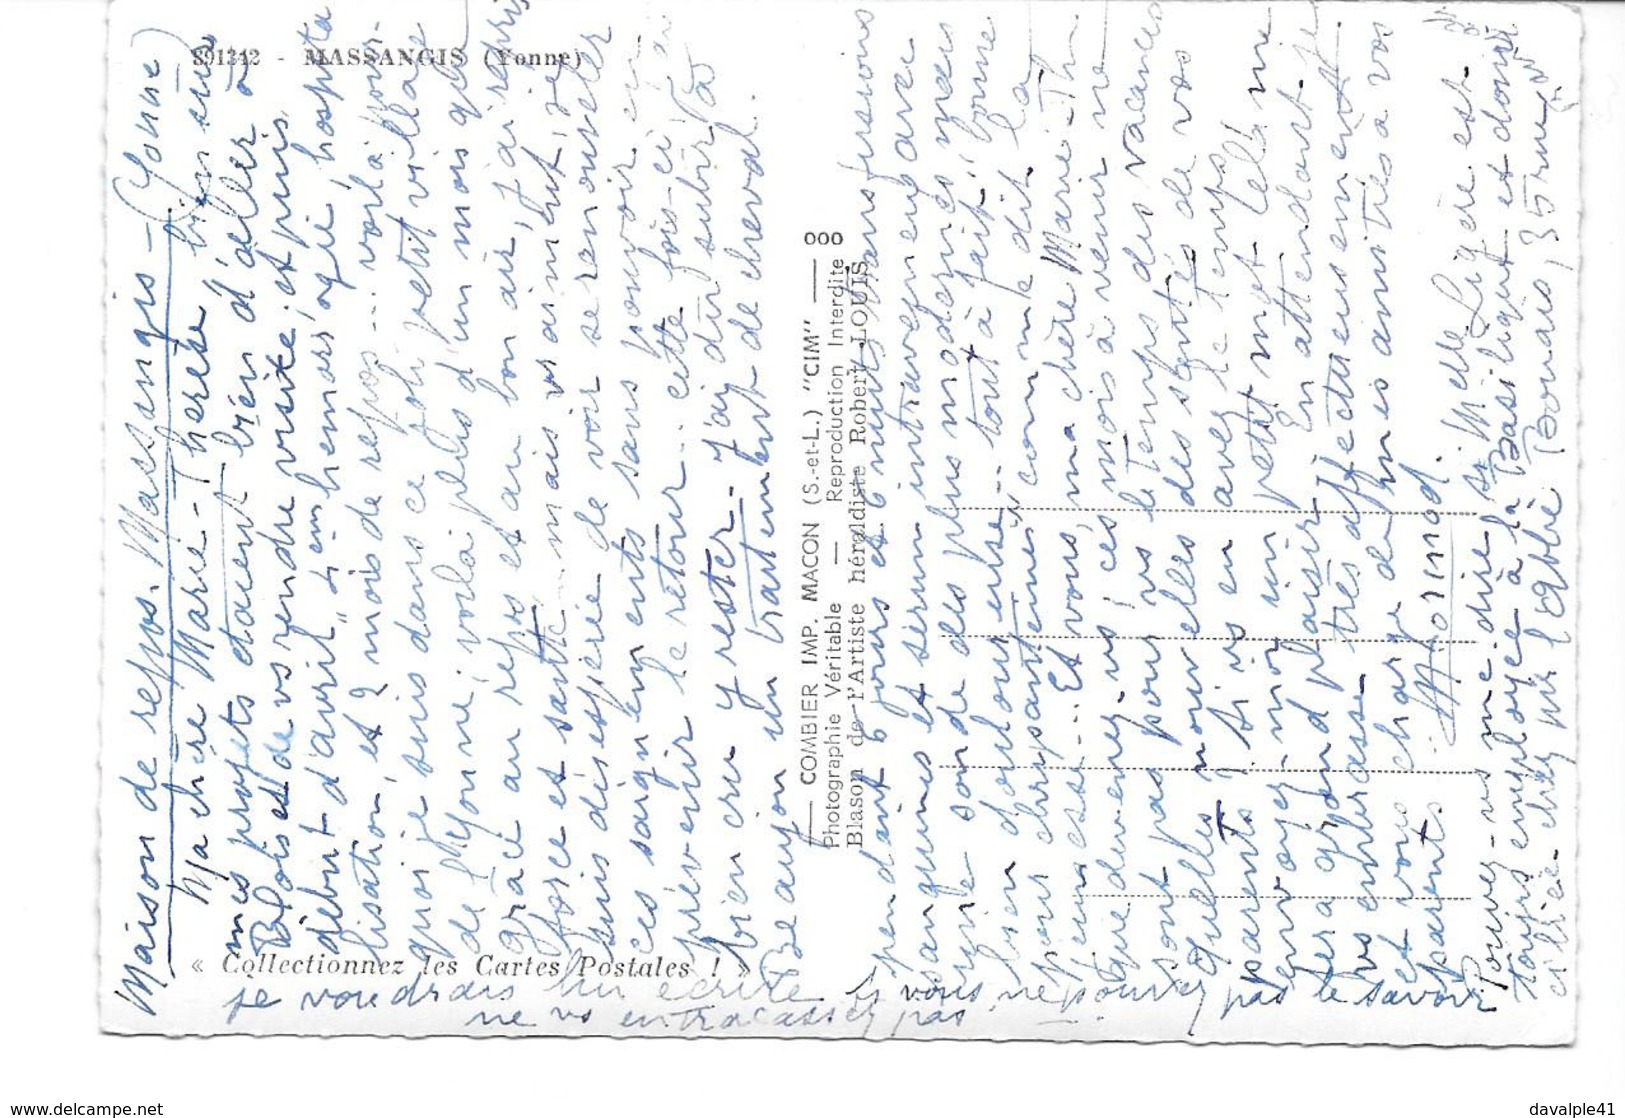 891342 - MASSANGIS (Yonne)
« Collectionnez les Cartes Postales ! »
COMBIER IMP. MACON (S.-et-L.) "CIM" — 000
Photographie Véritable — Reproduction Interdite
Blason de l'Artiste héraldiste Robert LOUIS
Maison de repos. Massangis - (Yonne)
Ma chère Marie-Thérèse, bien sûr
mes projets étaient bien d'aller à
Blois et de vs rendre visite, et puis
début d'avril 4em hémorragie, hospita
lisation, et 2 mois de repos... voilà pour-
quoi je suis dans ce joli petit village
de l'Yonne, voilà plus d'un mois que
grâce au repos et au bon air, j'ai repris
force et santé... mais vraiment, je
suis désespérée de voir se renouveler
ces saignements sans pouvoir en
prévenir le retour... cette fois-ci j'ai
bien cru y rester. J'ai dû subir à
Beaujon un traitement de cheval.
pendant 6 jours et 6 nuits, transfusions
sanguines et sérum intraveineux avec
sonde des plus modernes mais
bien douloureuse... tout à fait "bonne
pour chrysanthèmes" comme dit la
jeunesse... Et vous, ma chère Marie-Th
que devenez-vs ! ces mois à venir ne
sont pas pour vs le temps des vacances
quelles nouvelles des santés de vos
parents, si vs en avez le temps
envoyez-moi un petit mot cela me
fera grand plaisir. En attendant je
vs embrasse très affectueusement.
et vous charge de mes amitiés à vos
parents
Pouvez-vs me dire si Melle Ligère est
tjours employée à la Basilique et domi
ciliée chez Mr l'abbé 35 rue
je voudrais lui écrire si vous ne pouvez pas le savoir
ne vs entracassez pas